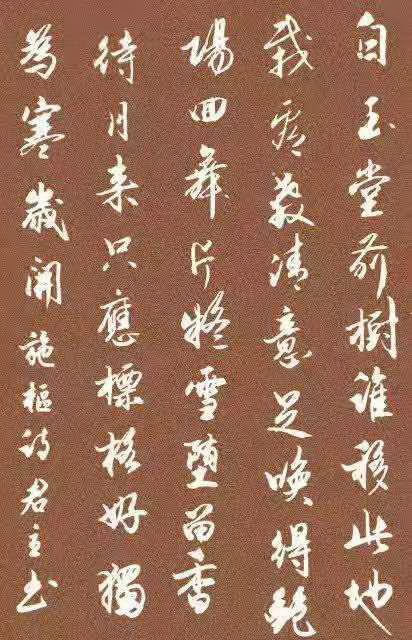 白玉堂前樹誰移此地
栽清意足喚得艷
陽回舞片擬雪墮留香
待月来只應標格好獨
為寒歲開施樞詩君主书